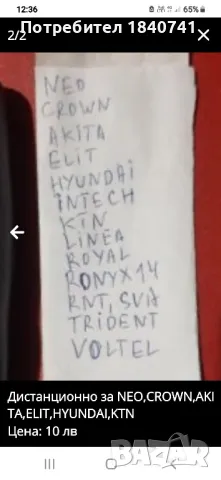 12:36
65%
Потребител 1840741
2/2
NEO
CROWN
AKITA
ELIT
HYUNDAI
INTECH
KTN
LINEA
ROYAL
RONYX14
RNT, SVA
TRIDENT
VOLTEL
Дистанционно за NEO,CROWN,AKI
TA,ELIT,HYUNDAI,KTN
Цена: 10 лв
bazar